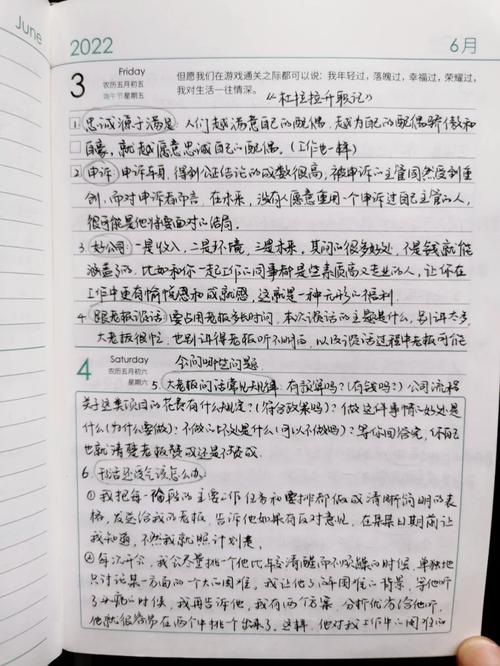 June
2022
6月
3
Friday
农历五月初五
端午节星期五
但愿我们在游戏通关之际都可以说:我年轻过,落魄过,幸福过,荣耀过,
我对生活一往情深。
《杜拉拉升职记》
1 忠诚源于满足:人们越满意自己的配偶,越为自己的配偶骄傲和
自豪,就越愿意忠诚自己的配偶,(工作也一样)
2. 申诉:申诉车间,得到公正结论的成数很高,被申诉的主管固然受到重
创,而对申诉者而言,在未来,没有人愿意重用一个申诉过自己主管的人,
很可能是他将要面对的结局.
3. 好公司:一是收入,二是环境,三是未来,其间的很多好处,不是钱就能
涵盖了的,比如和你一起工作的同事都是些素质高又专业的人,让你在
工作中更有愉悦感和成就感,这就是一种无形的福利.
4. 跟老板谈话:要占用老板多长时间,本次谈话的主题是什么,别讲太多,
大老板很忙,也别讲得老板听不明白,以及谈话过程中老板可能
4
Saturday
农历五月初六
星期六
会问哪些问题.
5. 大老板问话常见规律:有预算吗?(有钱吗?)公司流程
关于这类项目的花费有什么规定?(符合政策吗?)做这件事情的好处是
什么(为什么要做)?不做的坏处是什么(可以不做吗)?等你回答完,你自己
也就清楚老板赞成还是不赞成.
6. 干活还受气该怎么办
① 我把每一阶段的主要工作任务和安排都做成清晰简明的表
格,发送给我的老板,告诉他如果有反对意见,在某某日期前让
我知道,不然我就照计划走.
② 每次开会,我会尽量挑一个他比较清醒而不烦躁的时候,单独地
只讨论某一方面的一个大的困难,我让他了解困难的背景,等他听
了头痛的时候,我再告诉他,我有两个方案,分析优劣给他听,
他就很容易在两个中挑一个出来了.这样,他对我工作中的困难的